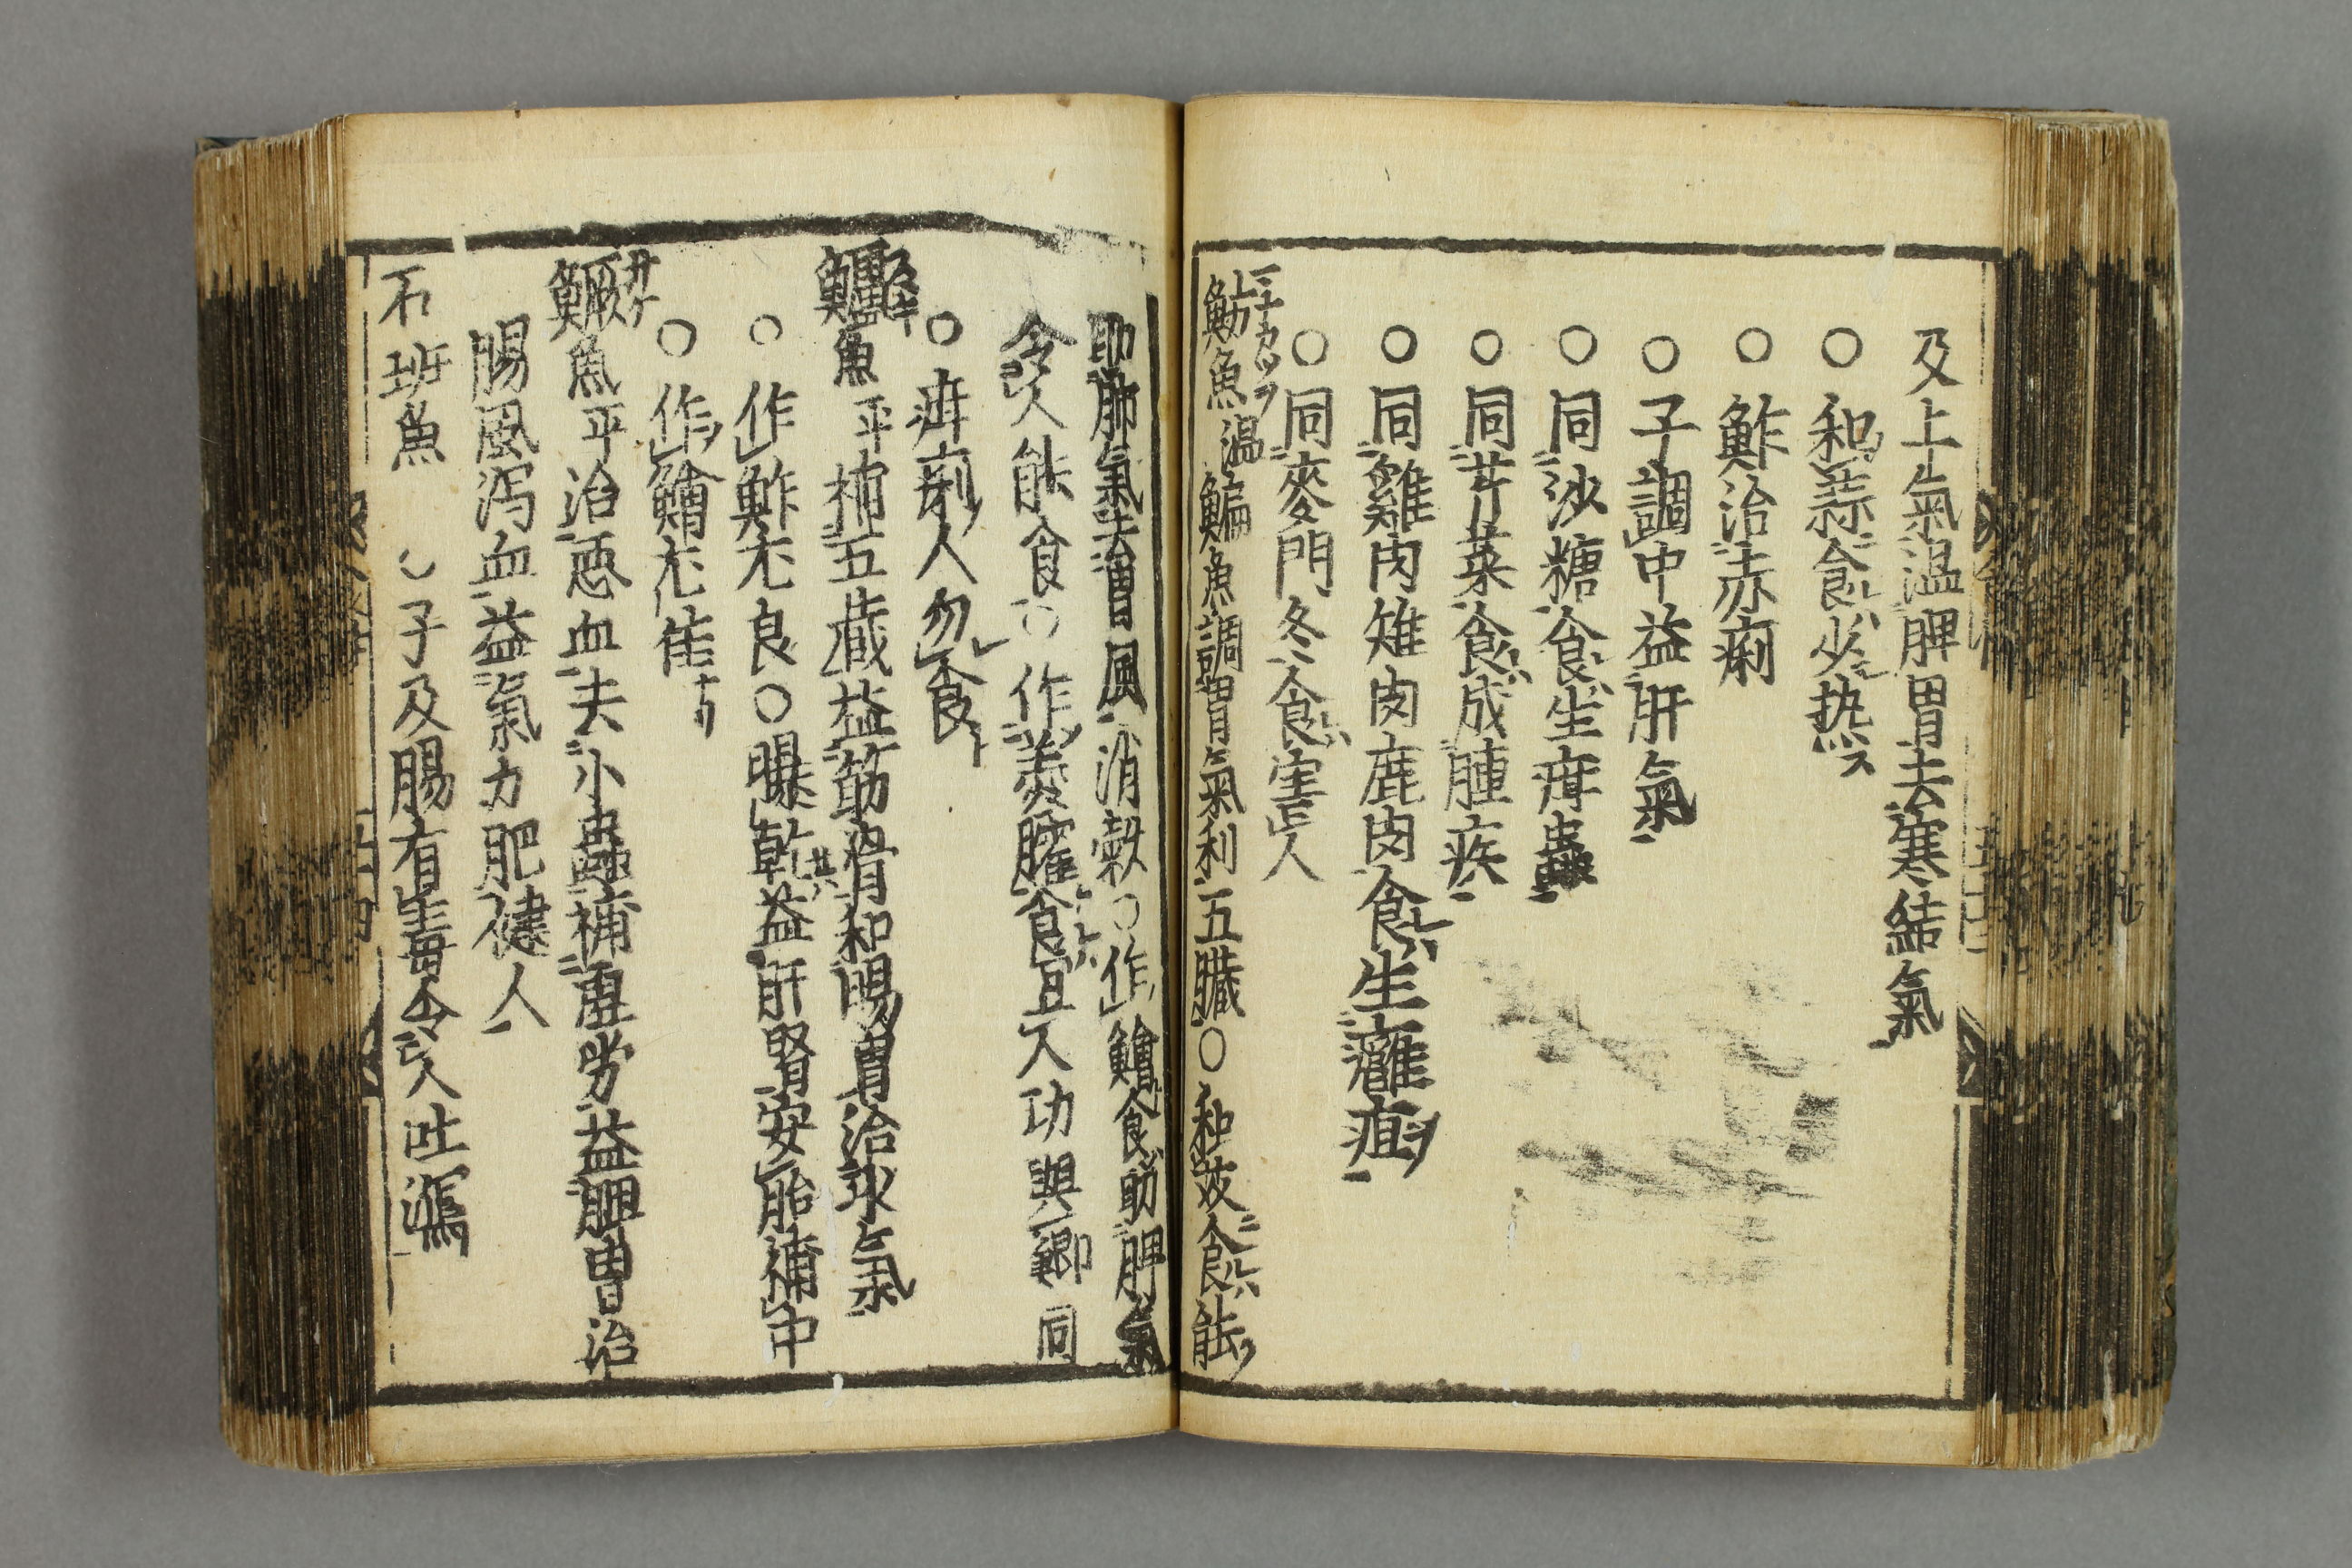 及上氣温脾胃去寒結氣
○和蒜食少熱ス
○鮓治赤痢
○子調中益肝氣
○同沙糖食生疳蟲
○同芥菜食成腫疾
○同雞肉雉肉鹿肉食生癰疽
○同麥門冬食害人
魴魚温鯿魚調胃氣利五臓○和芥食能
助肺氣去胃風消穀○作鱠食助脾氣
令人能食○作羹臛食宜人功與鯽同
○疳痢人勿食
鱸魚平補五蔵益筋骨和腸胃治水氣
○作鮓尤良○曝乾益肝腎安胎補中
○作鱠尤佳ナリ
鱖魚平治惡血去小蟲補虚労益脾胃治
腸風瀉血益氣力肥健人
石班魚 子及腸有毒令人吐瀉